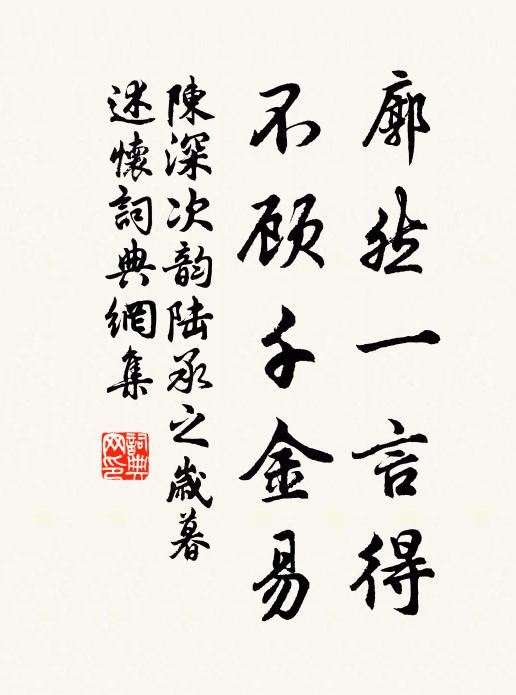 廓然一言得
不顾千金易
陳深次韵陆承之歲暮
述懷詞典網集
詞典网印